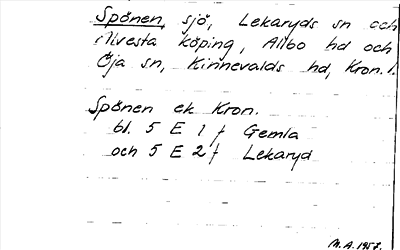 Spånen, sjö, Lekaryds sn och
Alvesta köping, Allbo hd och
Öja sn, Kinnevalds hd, Kron. l.
Spånen ek Kron.
bl. 5 E 1 f Gemla
och 5 E 2 f Lekaryd
M.A. 1957.